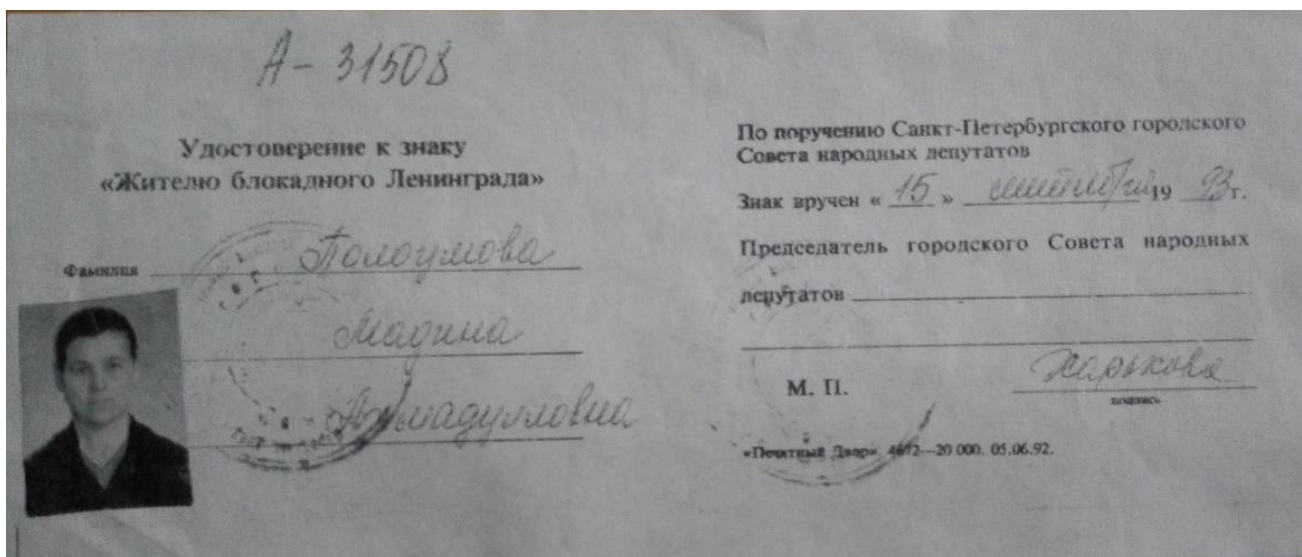 А - 31508
Удостоверение к знаку
«Жителю блокадного Ленинграда»
Фамилия Полоумова
Мадина
Ахмадулловна
По поручению Санкт-Петербургского городского
Совета народных депутатов
Знак вручен « 15 » сентября 19 93 г.
Председатель городского Совета народных
депутатов
Харькова
М. П.
подпись
«Печатный Двор». 4672—20 000. 05.06.92.